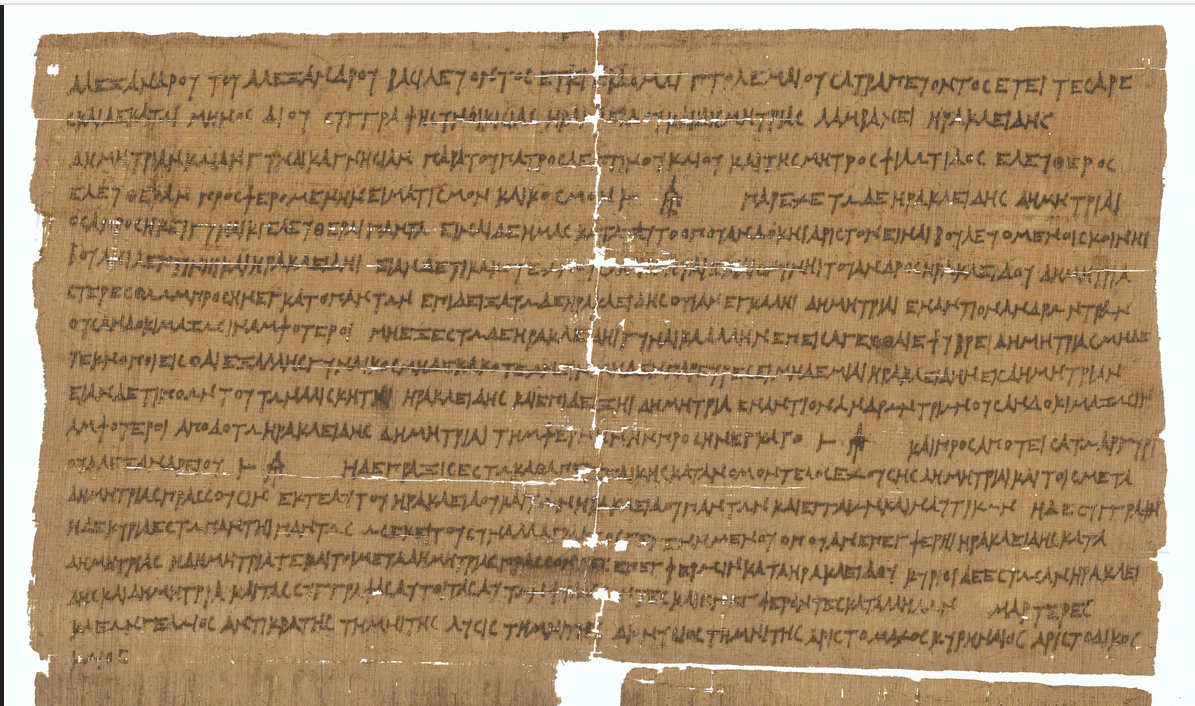 ΑΛΕΞΑΝΔΡΟΥ ΤΟΥ ΑΛΕΞΑΝΔΡΟΥ ΒΑΣΙΛΕΥΟΝΤΟΣ ΕΤΕΙ ΕΒΔΟΜΩΙ ΠΤΟΛΕΜΑΙΟΥ ΣΑΤΡΑΠΕΥΟΝΤΟΣ ΕΤΕΙ ΤΕΣΑΡΕ
ΣΚΑΙΔΕΚΑΤΩΙ ΜΗΝΟΣ ΔΙΟΥ ΣΥΓΓΡΑΦΗ ΣΥΝΟΙΚΙΣΙΑΣ ΗΡΑΚΛΕΙΔΟΥ ΚΑΙ ΔΗΜΗΤΡΙΑΣ ΛΑΜΒΑΝΕΙ ΗΡΑΚΛΕΙΔΗΣ
ΔΗΜΗΤΡΙΑΝ ΚΩΙΑΝ ΓΥΝΑΙΚΑ ΓΝΗΣΙΑΝ ΠΑΡΑ ΤΟΥ ΠΑΤΡΟΣ ΛΕΠΤΙΝΟΥ ΚΩΙΟΥ ΚΑΙ ΤΗΣ ΜΗΤΡΟΣ ΦΙΛΩΤΙΔΟΣ ΕΛΕΥΘΕΡΟΣ
ΕΛΕΥΘΕΡΑΝ ΠΡΟΣΦΕΡΟΜΕΝΗΝ ΕΙΜΑΤΙΣΜΟΝ ΚΑΙ ΚΟΣΜΟΝ 𐅂 Α ΠΑΡΕΧΕΤΩ ΔΕ ΗΡΑΚΛΕΙΔΗΣ ΔΗΜΗΤΡΙΑΙ
ΟΣΑ ΠΡΟΣΗΚΕΙ ΓΥΝΑΙΚΙ ΕΛΕΥΘΕΡΑΙ ΠΑΝΤΑ ΕΙΝΑΙ ΔΕ ΗΜΑΣ ΚΑΤΑ ΤΑΥΤΟ ΟΠΟΥ ΑΝ ΔΟΚΗΙ ΑΡΙΣΤΟΝ ΕΙΝΑΙ ΒΟΥΛΕΥΟΜΕΝΟΙΣ ΚΟΙΝΗΙ
ΒΟΥΛΗΙ ΛΕΠΤΙΝΗΙ ΚΑΙ ΗΡΑΚΛΕΙΔΗΙ ΕΙΑΝ ΔΕ ΤΙ ΚΑΚΟΤΕΧΝΟΥΣΑ ΑΛΙΣΚΗΤΑΙ ΕΠΙ ΑΙΣΧΥΝΗΙ ΤΟΥ ΑΝΔΡΟΣ ΗΡΑΚΛΕΙΔΟΥ ΔΗΜΗΤΡΙΑ
ΣΤΕΡΕΣΘΩ ΩΜ ΠΡΟΣΗΝΕΓΚΑΤΟ ΠΑΝΤΩΝ ΕΠΙΔΕΙΞΑΤΩ ΔΕ ΗΡΑΚΛΕΙΔΗΣ ΟΤΙ ΑΝ ΕΓΚΑΛΗΙ ΔΗΜΗΤΡΙΑΙ ΕΝΑΝΤΙΟΝ ΑΝΔΡΩΝ ΤΡΙΩΝ
ΟΥΣ ΑΝ ΔΟΚΙΜΑΖΩΣΙΝ ΑΜΦΟΤΕΡΟΙ ΜΗ ΕΞΕΣΤΩ ΔΕ ΗΡΑΚΛΕΙΔΗΙ ΓΥΝΑΙΚΑ ΑΛΛΗΝ ΕΠΕΙΣΑΓΕΣΘΑΙ ΕΦ ΥΒΡΕΙ ΔΗΜΗΤΡΙΑΣ ΜΗΔΕ
ΤΕΚΝΟΠΟΙΕΙΣΘΑΙ ΕΞ ΑΛΛΗΣ ΓΥΝΑΙΚΟΣ ΜΗΔΕ ΚΑΚΟΤΕΧΝΕΙΝ ΜΗΔΕΝ ΠΑΡΕΥΡΕΣΕΙ ΜΗΔΕΜΙΑΙ ΗΡΑΚΛΕΙΔΗΝ ΕΙΣ ΔΗΜΗΤΡΙΑΝ
ΕΙΑΝ ΔΕ ΤΙ ΠΟΩΝ ΤΟΥΤΩΝ ΑΛΙΣΚΗΤΑΙ ΗΡΑΚΛΕΙΔΗΣ ΚΑΙ ΕΠΙΔΕΙΞΗΙ ΔΗΜΗΤΡΙΑ ΕΝΑΝΤΙΟΝ ΑΝΔΡΩΝ ΤΡΙΩΝ ΟΥΣ ΑΝ ΔΟΚΙΜΑΖΩΣΙΝ
ΑΜΦΟΤΕΡΟΙ ΑΠΟΔΟΤΩ ΗΡΑΚΛΕΙΔΗΣ ΔΗΜΗΤΡΙΑΙ ΤΗΜ ΦΕΡΝΗΝ ΗΝ ΠΡΟΣΗΝΕΓΚΑΤΟ 𐅂 Α ΚΑΙ ΠΡΟΣΑΠΟΤΕΙΣΑΤΩ ΑΡΓΥΡΙ
ΟΥ ΑΛΕΞΑΝΔΡΕΙΟΥ 𐅂 Α Η ΔΕ ΠΡΑΞΙΣ ΕΣΤΩ ΚΑΘΑΠΕΡ ΕΓ ΔΙΚΗΣ ΚΑΤΑ ΝΟΜΟΝ ΤΕΛΟΣ ΕΧΟΥΣΗΣ ΔΗΜΗΤΡΙΑΙ ΚΑΙ ΤΟΙΣ ΜΕΤΑ
ΔΗΜΗΤΡΙΑΣ ΠΡΑΣΣΟΥΣΙΝ ΕΚ ΤΕ ΑΥΤΟΥ ΗΡΑΚΛΕΙΔΟΥ ΚΑΙ ΤΩΝ ΗΡΑΚΛΕΙΔΟΥ ΠΑΝΤΩΝ ΚΑΙ ΕΓΓΑΙΩΝ ΚΑΙ ΝΑΥΤΙΚΩΝ Η ΔΕ ΣΥΓΓΡΑΦΗ
ΗΔΕ ΚΥΡΙΑ ΕΣΤΩ ΠΑΝΤΗΙ ΠΑΝΤΩΣ ΩΣ ΕΚΕΙ ΤΟΥ ΣΥΝΑΛΛΑΓΜΑΤΟΣ ΓΕΓΕΝΗΜΕΝΟΥ ΟΠΟΥ ΑΝ ΕΠΕΓΦΕΡΗΙ ΗΡΑΚΛΕΙΔΗΣ ΚΑΤΑ
ΔΗΜΗΤΡΙΑΣ Η ΔΗΜΗΤΡΙΑ ΤΕ ΚΑΙ ΤΟΙ ΜΕΤΑ ΔΗΜΗΤΡΙΑΣ ΠΡΑΣΣΟΝΤΕΣ ΕΠΕΓΦΕΡΩΣΙΝ ΚΑΤΑ ΗΡΑΚΛΕΙΔΟΥ ΚΥΡΙΟΙ ΔΕ ΕΣΤΩΣΑΝ ΗΡΑΚΛΕΙ
ΔΗΣ ΚΑΙ ΔΗΜΗΤΡΙΑ ΚΑΙ ΤΑΣ ΣΥΓΓΡΑΦΑΣ ΑΥΤΟΙ ΤΑΣ ΑΥΤΩΝ ΦΥΛΑΣΣΟΝΤΕΣ ΚΑΙ ΕΠΕΓΦΕΡΟΝΤΕΣ ΚΑΤ ΑΛΛΗΛΩΝ ΜΑΡΤΥΡΕΣ
ΚΛΕΩΝ ΓΕΛΩΙΟΣ ΑΝΤΙΚΡΑΤΗΣ ΤΗΜΝΙΤΗΣ ΛΥΣΙΣ ΤΗΜΝΙΤΗΣ ΔΙΟΝΥΣΙΟΣ ΤΗΜΝΙΤΗΣ ΑΡΙΣΤΟΜΑΧΟΣ ΚΥΡΗΝΑΙΟΣ ΑΡΙΣΤΟΔΙΚΟΣ
ΚΩΙΟΣ